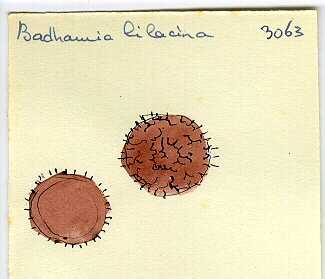 Badhamia lilacina 3063